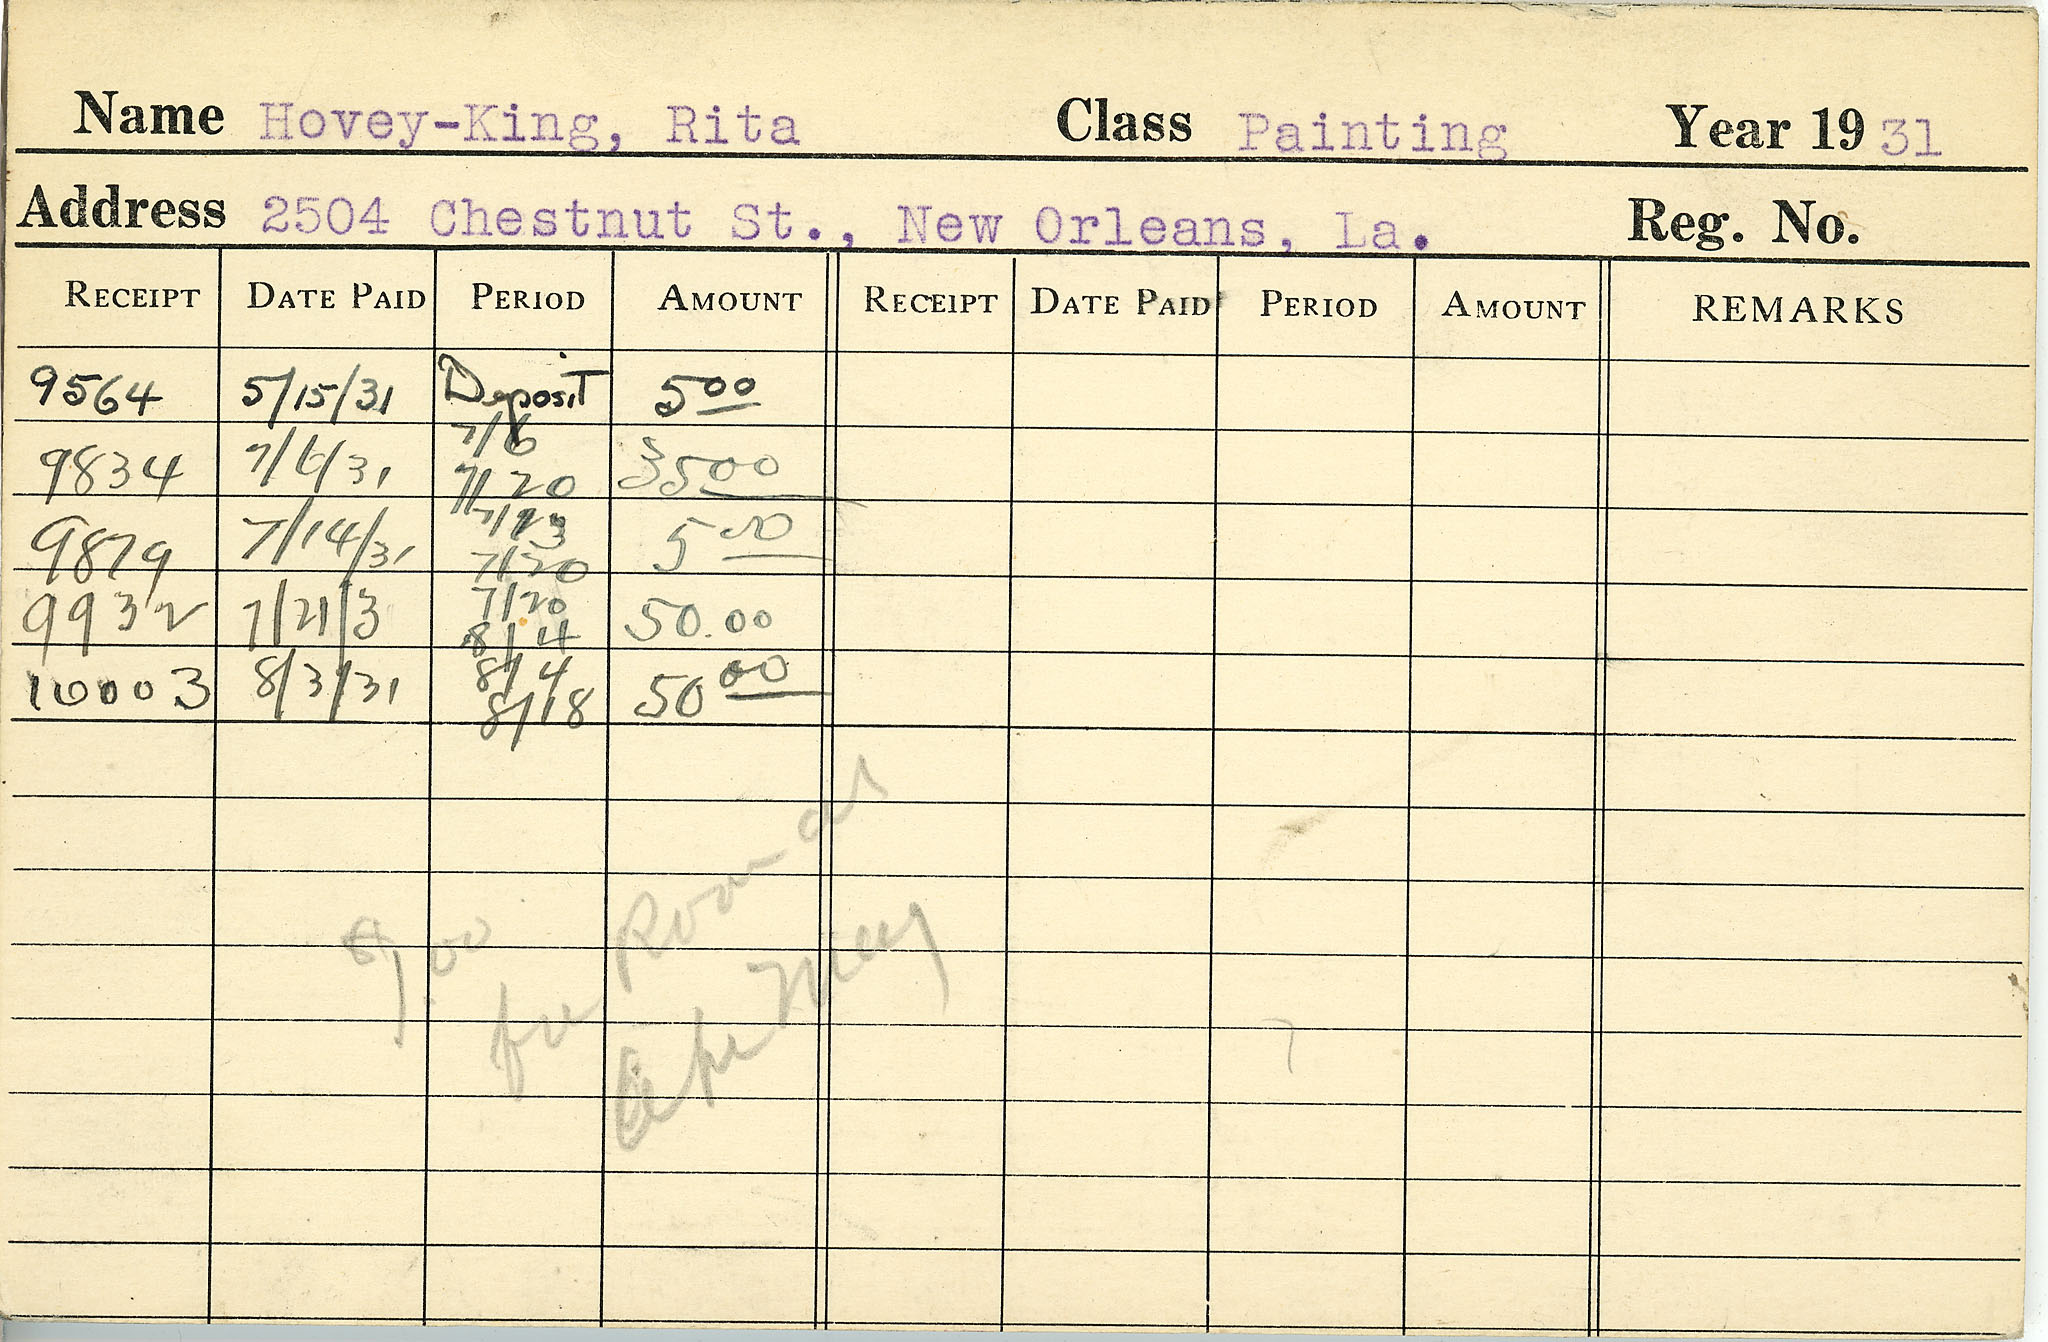 Name Hovey-King, Rita Class Painting Year 19 31
Address 2504 Chestnut St., New Orleans, La. Reg. No.
RECEIPT DATE PAID PERIOD AMOUNT RECEIPT DATE PAID PERIOD AMOUNT REMARKS
9564 5/15/31 Deposit 5 00
9834 7/6/31 7/6 7/20 35 00
9879 7/14/31 7/13 7/20 5 00
9932 7/21/3 7/20 8/4 50.00
10003 8/3/31 8/4 8/18 50 00
9.00 for Room at